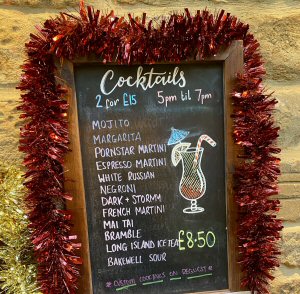 Cocktails
2 for £15 5pm til 7pm
MOJITO
MARGARITA
PORNSTAR MARTINI
ESPRESSO MARTINI
WHITE RUSSIAN
NEGRONI
DARK + STORMM
FRENCH MARTINI
MAI TAI
BRAMBLE
LONG ISLAND ICE TEA
BAKEWELL SOUR
£8.50
# CUSTOM COCKTAILS ON REQUEST #